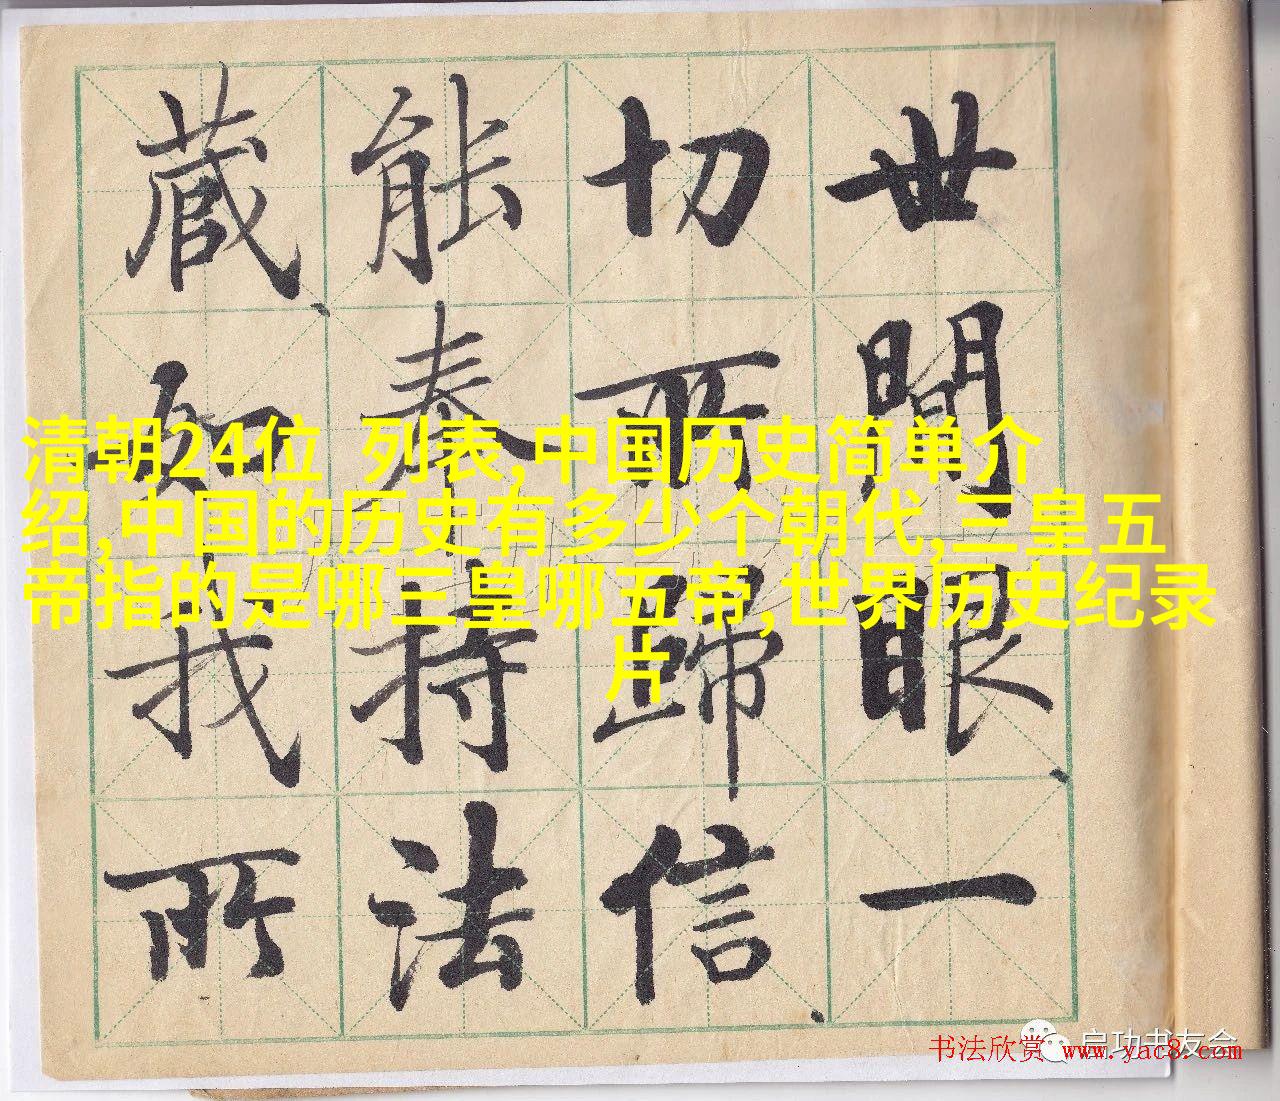 世間眼一
切所歸信
能奉持法
藏如我所
清朝24位 列表,中国历史简单介
绍,中国的历史有多少个朝代,三皇五
帝指的是哪三皇哪五帝,世界历史纪录
片
启功书友会
书法欣赏 www.yac8.com